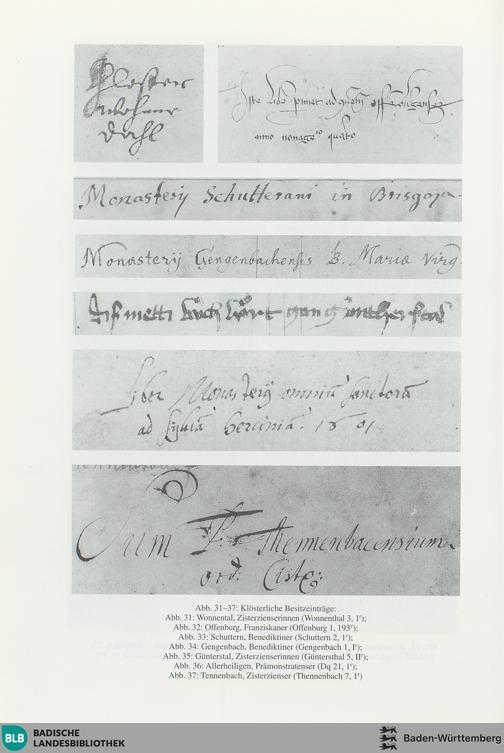 Closter
Wohnen
dahl
Iste liber pertinet ad
anno nonagesimo quarto
Monasterij Schutterani in Brisgoja
Monasterij Gengenbachensis B. Mariæ virg
Dis metti buch hört gen güntherstal
Liber Monasterij omniũ sanctorũ
ad sylvã herciniã. 1601
Sum P. Thennenbacensium
ord: Cist
Abb. 31–37: Klösterliche Besitzeinträge:
Abb. 31: Wonnental, Zisterzienserinnen (Wonnenthal 3, 1ʳ);
Abb. 32: Offenburg, Franziskaner (Offenburg 1, 193ᵛ);
Abb. 33: Schuttern, Benediktiner (Schuttern 2, 1ʳ);
Abb. 34: Gengenbach, Benediktiner (Gengenbach 1, Iʳ);
Abb. 35: Günterstal, Zisterzienserinnen (Günterstal 5, IIʳ);
Abb. 36: Allerheiligen, Prämonstratenser (Dq 21, 1ʳ);
Abb. 37: Tennenbach, Zisterzienser (Thennenbach 7, 1ʳ)
BLB BADISCHE
LANDESBIBLIOTHEK
Baden-Württemberg